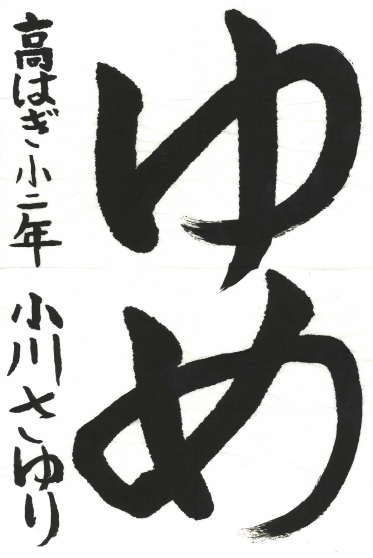 ゆめ
高はぎ小二年 小川さゆり